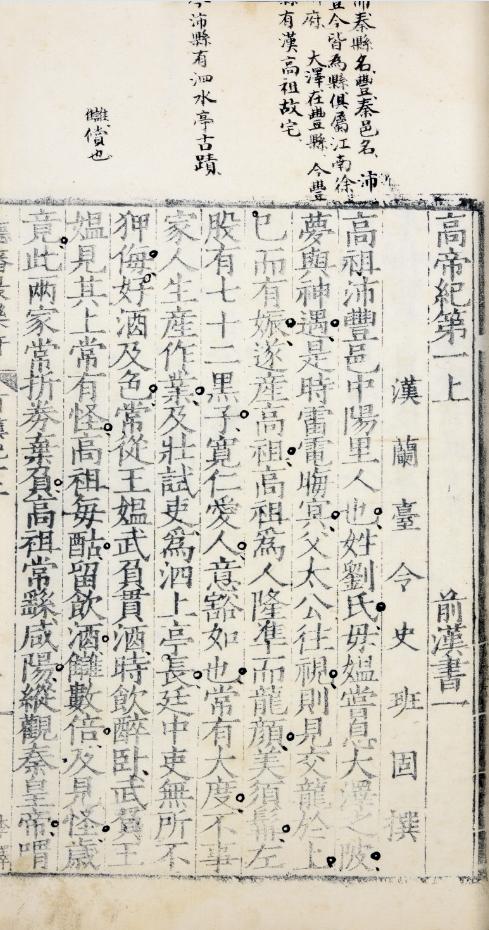 沛秦縣名豐秦邑名 沛
豐今皆為縣俱屬江南徐
州府 大澤在豐縣 今豐
縣有漢高祖故宅
今沛縣有泗水亭古蹟
讎償也
高帝紀第一上 前漢書一
漢蘭臺令史班固撰
高祖沛豐邑中陽里人也姓劉氏母媼嘗息大澤之陂
夢與神遇是時雷電晦冥父太公往視則見交龍於上
已而有娠遂產高祖高祖為人隆準而龍顏美須髯左
股有七十二黑子寬仁愛人意豁如也常有大度不事
家人生產作業及壯試吏為泗上亭長廷中吏無所不
狎侮好酒及色常從王媼武負貰酒時飲醉臥武負王
媼見其上常有怪高祖每酤留飲酒讎數倍及見怪歲
竟此兩家常折券棄負高祖常繇咸陽縱觀秦皇帝喟